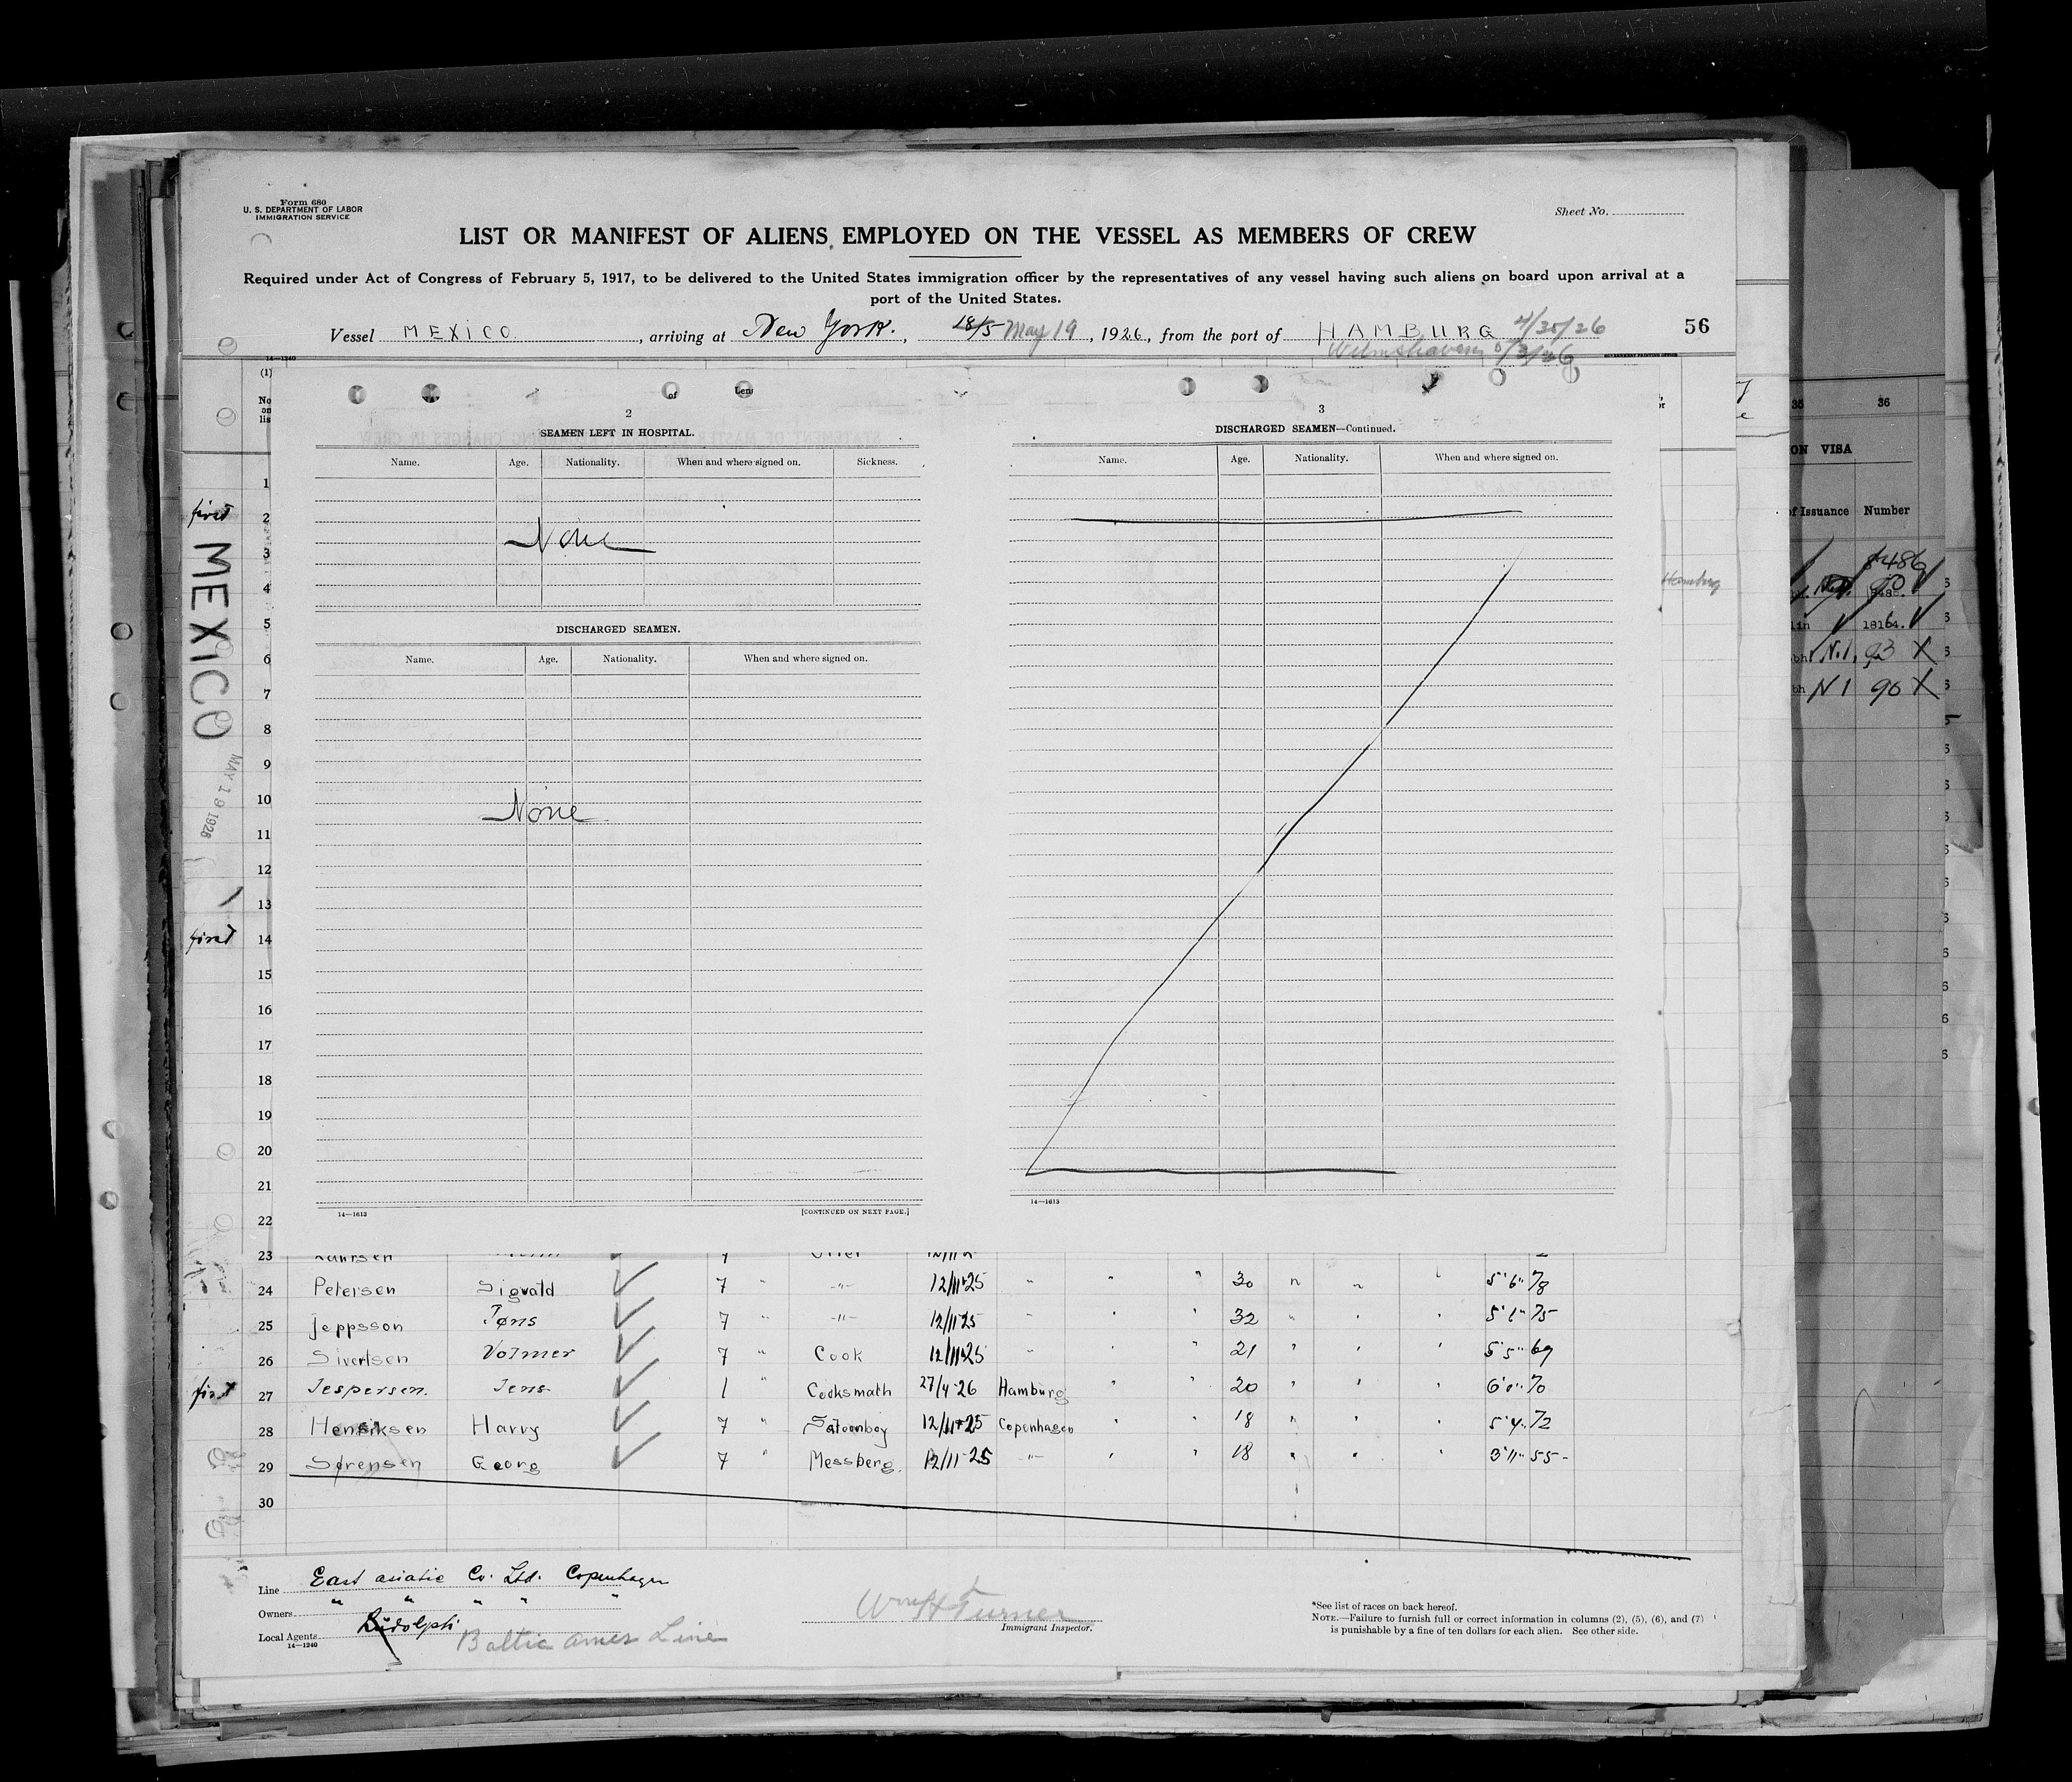 Form 680
U. S. DEPARTMENT OF LABOR
IMMIGRATION SERVICE
Sheet No.
LIST OR MANIFEST OF ALIENS EMPLOYED ON THE VESSEL AS MEMBERS OF CREW
Required under Act of Congress of February 5, 1917, to be delivered to the United States immigration officer by the representatives of any vessel having such aliens on board upon arrival at a
port of the United States.
Vessel MEXICO, arriving at New York., 18/5 May 19, 1926, from the port of HAMBURG 4/30/26
56
14—1240
(1)
No
on
lis
2
SEAMEN LEFT IN HOSPITAL.
Name. Age. Nationality. When and where signed on. Sickness.
None
DISCHARGED SEAMEN.
Name. Age. Nationality. When and where signed on.
None
14—1613 [CONTINUED ON NEXT PAGE.]
3
DISCHARGED SEAMEN—Continued.
Name. Age. Nationality. When and where signed on.
14—1613
Hamburg
35 36
ON VISA
of Issuance Number
8486
18164.
N.1. 93 X
N 1 90 X
first
MEXICO
MAY 19 1926
first
1
2
3
4
5
6
7
8
9
10
11
12
13
14
15
16
17
18
19
20
21
22
23
24 Petersen Sigvald ✓ 7 " -"- 12/11-25 " " 30 " " " 5'6" 78
25 Jeppsson Tøns ✓ 7 " -"- 12/11-25 " " " 32 " " " 5'1" 75
26 Sivertsen Volmer ✓ 7 " Cook 12/11-25 " " " 21 " " " 5'5" 69
first 27 Jespersen. Jens ✓ 1 " Cooksmath 27/4-26 Hamburg " " 20 " " " 6'0" 70
28 Henriksen Harry ✓ 7 " Saloonboy 12/11-25 Copenhagen " " 18 " " " 5'4" 72
29 Sørensen Georg ✓ 7 " Messberg. 12/11-25 -"- " " 18 " " " 3'11" 55-
30
Line East asiatic Co. Ltd. Copenhagen
Owners " " " " "
Local Agents Rudolph Baltic Amer Line
14—1240
Wm H Turner
Immigrant Inspector.
*See list of races on back hereof.
NOTE.—Failure to furnish full or correct information in columns (2), (5), (6), and (7)
is punishable by a fine of ten dollars for each alien. See other side.